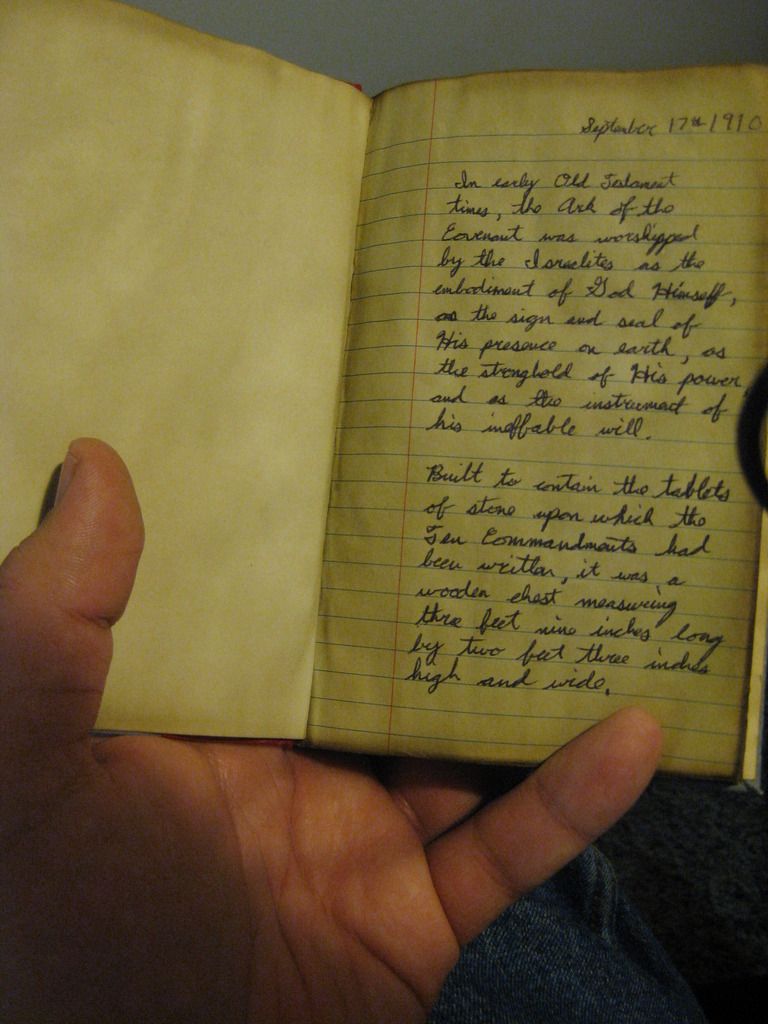 September 17th 1910
In early Old Testament
times, the Ark of the
Covenant was worshipped
by the Israelites as the
embodiment of God Himself,
as the sign and seal of
His presence on earth, as
the stronghold of His power,
and as the instrument of
his ineffable will.
Built to contain the tablets
of stone upon which the
Ten Commandments had
been written, it was a
wooden chest measuring
three feet nine inches long
by two feet three inches
high and wide.